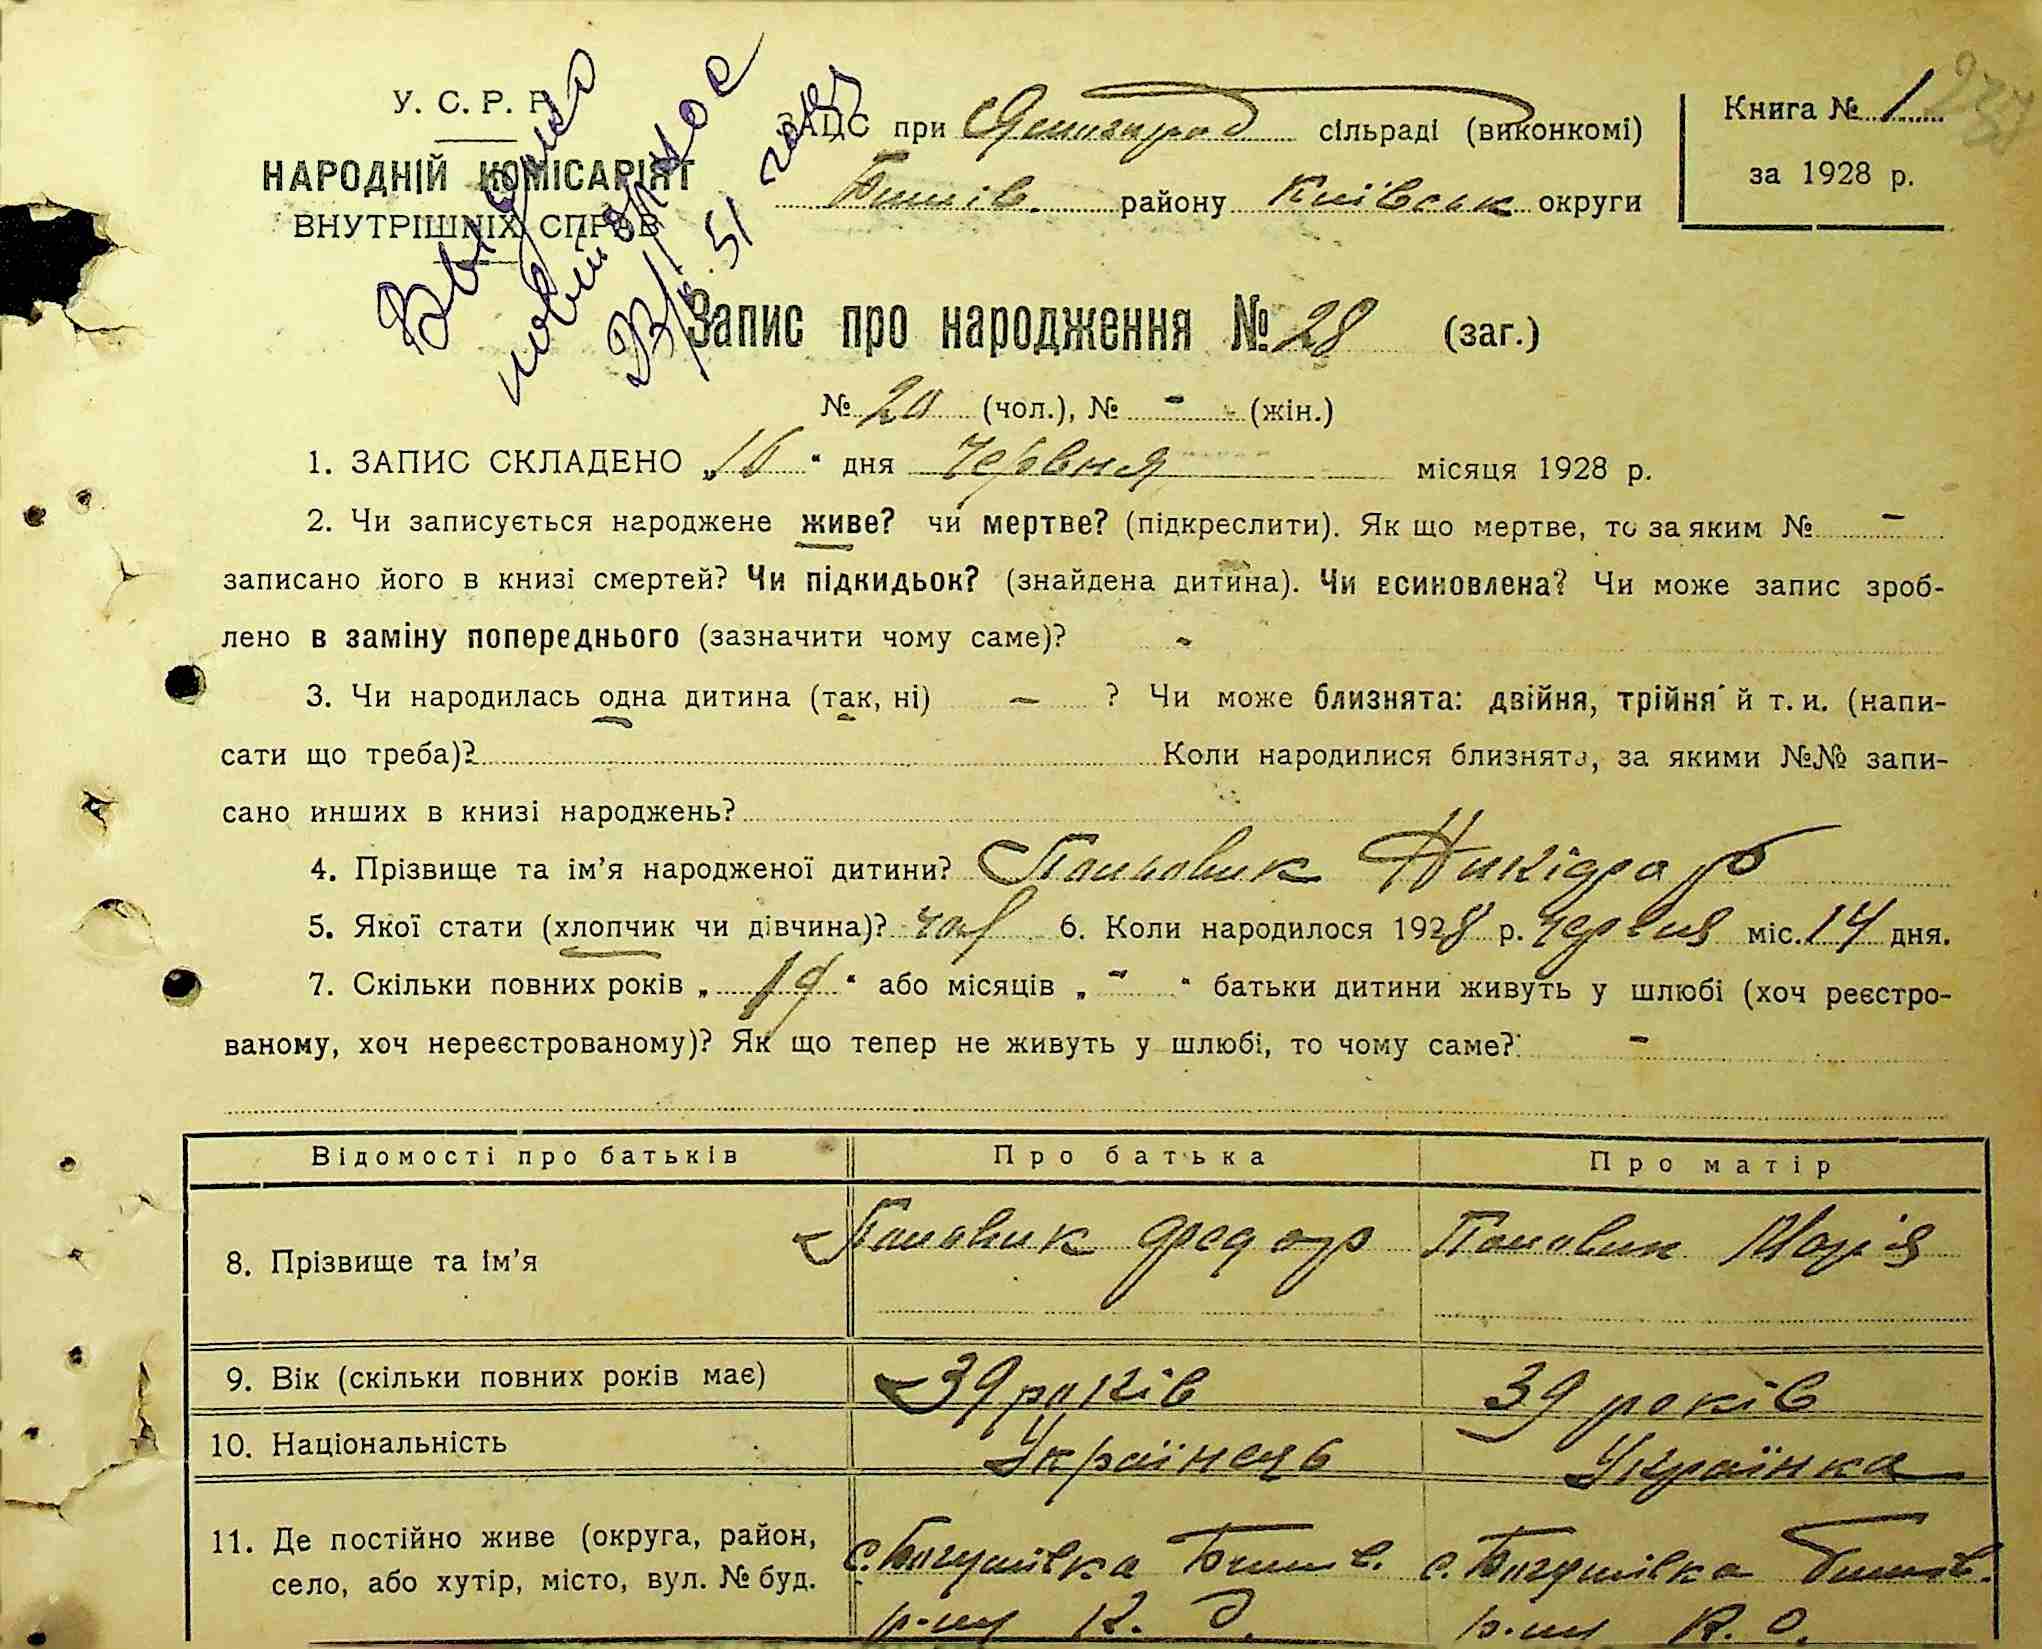 У. С. Р. Р.
НАРОДНІЙ КОМІСАРІЯТ
ВНУТРІШНІХ СПРАВ
ЗАЦС при Ясногород сільраді (виконкомі)
Бишів. району Київськ округи
Книга № 1
за 1928 р.
Выдано
повторное
23/ 51 года
Запис про народження № 28 (заг.)
№ 20 (чол.), № - (жін.)
1. ЗАПИС СКЛАДЕНО „16“ дня червня місяця 1928 р.
2. Чи записується народжене живе? чи мертве? (підкреслити). Як що мертве, то за яким № -
записано його в книзі смертей? Чи підкидьок? (знайдена дитина). Чи всиновлена? Чи може запис зроб-
лено в заміну попереднього (зазначити чому саме)? -
3. Чи народилась одна дитина (так, ні) - ? Чи може близнята: двійня, трійня й т. и. (напи-
сати що треба)? Коли народилися близнята, за якими №№ запи-
сано инших в книзі народжень?
4. Прізвище та ім’я народженої дитини?
5. Якої стати (хлопчик чи дівчина)? чол 6. Коли народилося 1928 р. червня міс. 14 дня.
7. Скільки повних років „19“ або місяців „-“ батьки дитини живуть у шлюбі (хоч реєстро-
ваному, хоч нереєстрованому)? Як що тепер не живуть у шлюбі, то чому саме? -
Відомості про батьків Про батька Про матір
8. Прізвище та ім’я Поповик Федор Поповик Марія
9. Вік (скільки повних років має) 39 років 39 років
10. Національність Українець Українка
11. Де постійно живе (округа, район,
село, або хутір, місто, вул. № буд.
с. Богушівка Бишів. с. Богушівка Бишів.
р-ну К. О. р-ну К. О.